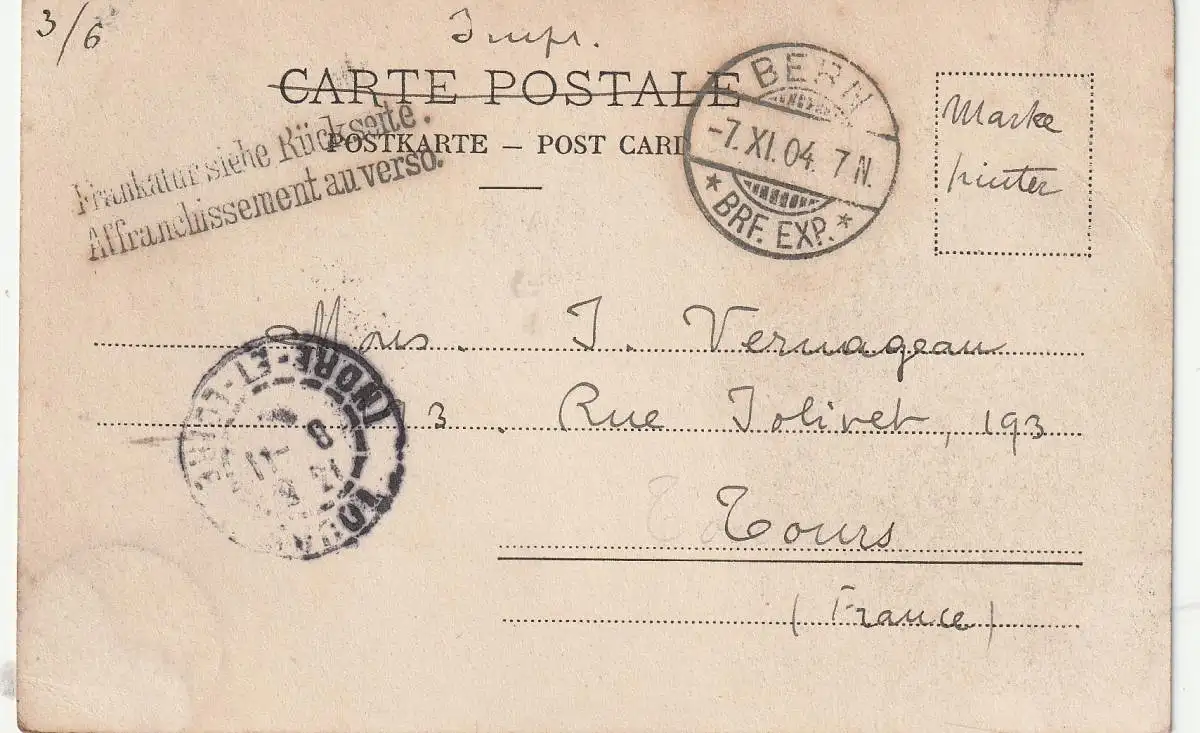 3/6
Impr.
CARTE POSTALE
POSTKARTE – POST CARD
Frankatur siehe Rückseite.
Affranchissement au verso.
BERN
-7.XI.04. 7 N.
* BRF. EXP. *
Marke
hinter
Mons. J. Vernageau
193. Rue Jolivet, 193
Tours
(France)
TOURS
INDRE-ET-LOIRE
8